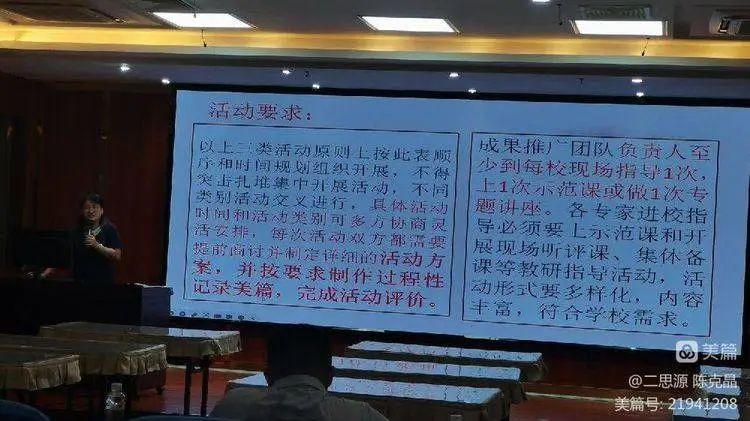 活动要求：
以上三类活动原则上按此表顺
序和时间规划组织开展，不得
突击扎堆集中开展活动，不同
类别活动交叉进行，具体活动
时间和活动类别可多方协商灵
活安排，每次活动双方都需要
提前商讨并制定详细的活动方
案，并按要求制作过程性
记录美篇，完成活动评价。
成果推广团队负责人至
少到每校现场指导1次，
上1次示范课或做1次专
题讲座。各专家进校指
导必须要上示范课和开
展现场听评课、集体备
课等教研指导活动，活
动形式要多样化，内容
丰富，符合学校需求。
美篇
@二思源 陈克晶
美篇号: 21941208